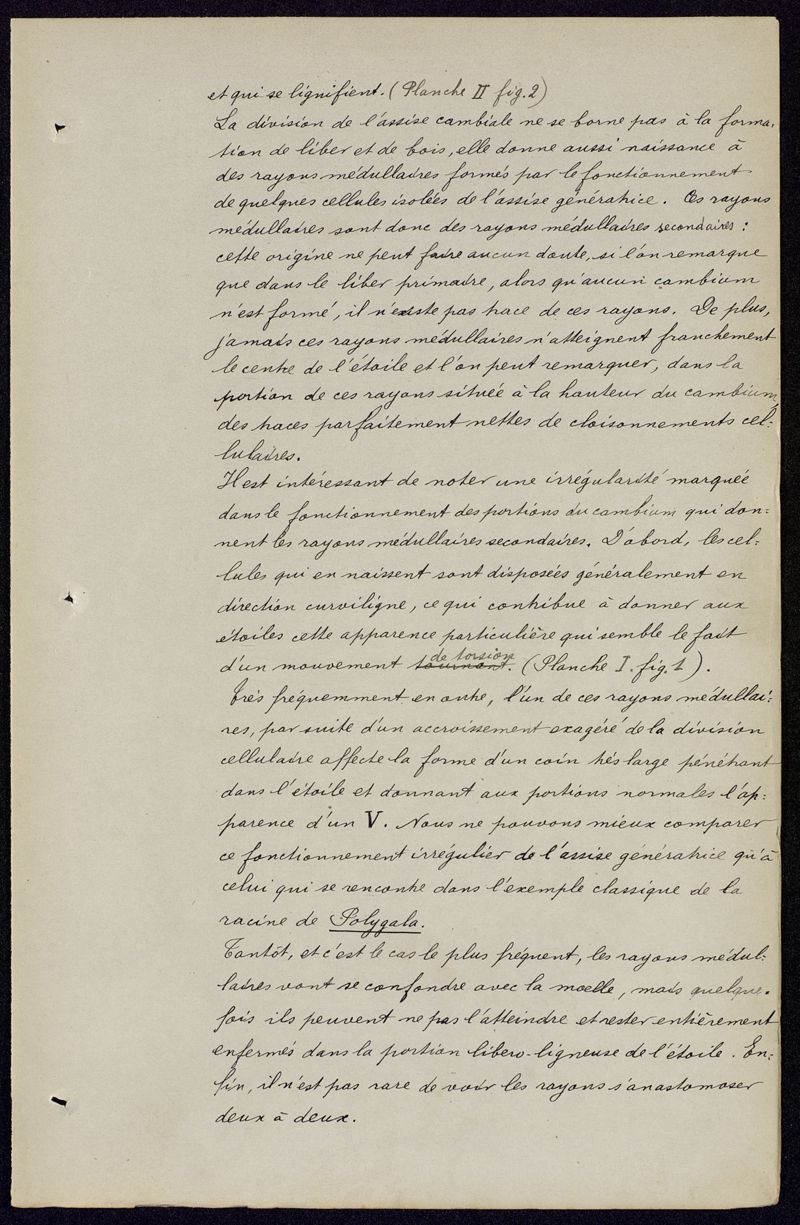 et qui se lignifient. (Planche II fig. 2)
La division de l'assise cambiale ne se borne pas à la forma-
tion de liber et de bois, elle donne aussi naissance à
des rayons médullaires formés par le fonctionnement
de quelques cellules isolées de l'assise génératrice. Ces rayons
médullaires sont donc des rayons médullaires secondaires :
cette origine ne peut faire aucun doute, si l'on remarque
que dans le liber primaire, alors qu'aucun cambium
n'est formé, il n'existe pas trace de ces rayons. De plus,
jamais ces rayons médullaires n'atteignent franchement
le centre de l'étoile et l'on peut remarquer, dans la
portion de ces rayons située à la hauteur du cambium,
des traces parfaitement nettes de cloisonnements cel-
lulaires.
Il est intéressant de noter une irrégularité marquée
dans le fonctionnement des portions du cambium qui don-
nent les rayons médullaires secondaires. D'abord, les cel-
lules qui en naissent sont disposées généralement en
direction curviligne, ce qui contribue à donner aux
etoiles cette apparence particulière qui semble le fait
de torsion
d'un mouvement tournant. (Planche I. fig. 1).
Très fréquemment en outre, l'un de ces rayons médullai-
res, par suite d'un accroissement exagéré de la division
cellulaire affecte la forme d'un coin très large pénétrant
dans l'étoile et donnant aux portions normales l'ap-
parence d'un V. Nous ne pouvons mieux comparer
ce fonctionnement irrégulier de l'assise génératrice qu'à
celui qui se rencontre dans l'exemple classique de la
racine de Polygala.
Tantôt, et c'est le cas le plus fréquent, les rayons médul-
laires vont se confondre avec la moelle, mais quelque-
fois ils peuvent ne pas l'atteindre et rester entièrement
enfermés dans la portion libero-ligneuse de l'étoile. En-
fin, il n'est pas rare de voir les rayons s'anastomoser
deux à deux.